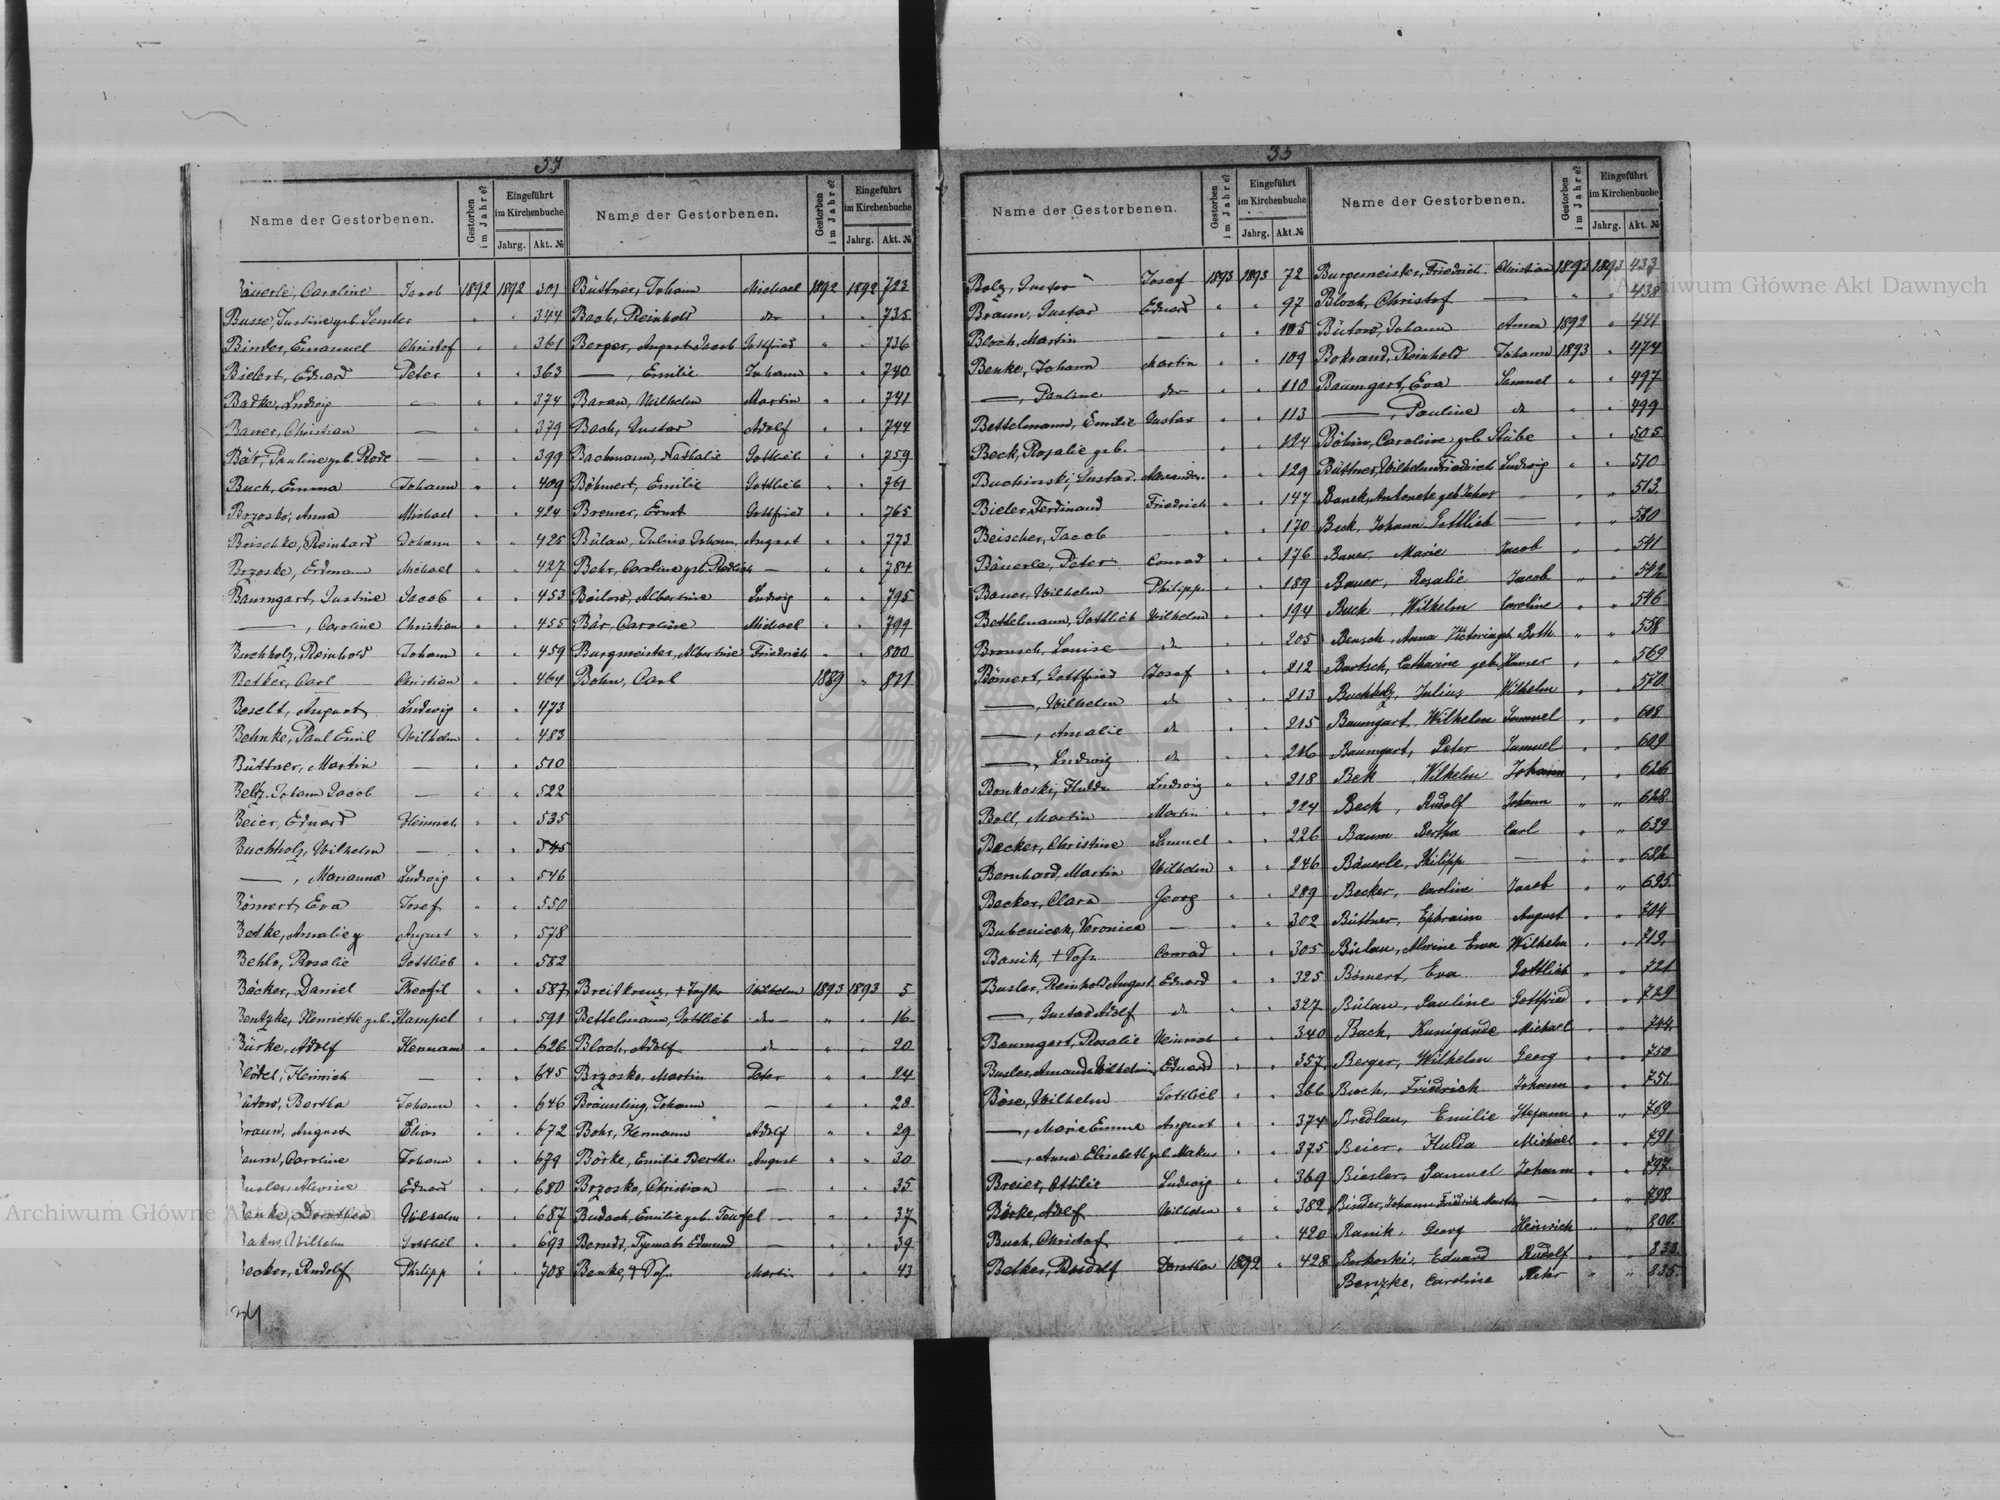 34
Name der Gestorbenen.
Gestorben im Jahre?
Eingeführt im Kirchenbuche
Jahrg. Akt. №
Name der Gestorbenen.
Gestorben im Jahre?
Eingeführt im Kirchenbuche
Jahrg. Akt. №
Bäuerle, Caroline Jacob 1892 1892 301
Busse, Justine geb. Semler " " 344
Binder, Emanuel Christof " " 361
Bielert, Eduard Peter " " 363
Badke, Ludwig — " " 374
Bauer, Christian — " " 379
Bär, Pauline geb. Rode — " " 399
Buch, Emma Johann " " 409
Brzoske, Anna Michael " " 424
Brischke, Reinhard Johann " " 425
Brzoske, Erdmann Michael " " 427
Baumgart, Justine Jacob " " 453
—, Caroline Christian " " 455
Buchholz, Reinhold Johann " " 459
Betker, Carl Christian " " 464
Beselt, August Ludwig " " 473
Behnke, Paul Emil Wilhelm " " 483
Büttner, Martin — " " 510
Beltz, Johann Jacob — " " 522
Beier, Eduard Heinrich " " 535
Buchholz, Wilhelm — " " 545
—, Marianna Ludwig " " 546
Römert, Eva Josef " " 550
Betke, Amalie August " " 578
Behlo, Rosalie Gottlieb " " 582
Bäcker, Daniel Theofil " " 587
Bentzke, Henriette geb. Hampel " " 591
Bürke, Adolf Hermann " " 626
Blödel, Heinrich — " " 645
Bütow, Bertha Johann " " 646
Braun, August Elias " " 672
Baum, Caroline Johann " " 679
Busler, Alwine Eduard " " 680
Benke, Dorothea Wilhelm " " 687
Bakus, Wilhelm Gottlieb " " 693
Becker, Rudolf Philipp " " 708
Büttner, Johann Michael 1892 1892 723
Bach, Reinhold do " " 735
Berger, August Jacob Gottfried " " 736
—, Emilie Johann " " 740
Baran, Wilhelm Martin " " 741
Bach, Gustav Adolf " " 744
Bachmann, Nathalie Gottlieb " " 759
Böhmert, Emilie Gottlieb " " 761
Bremer, Ernst Gottfried " " 765
Bülau, Julius Johann August " " 773
Bohr, Caroline geb. Radloch — " " 784
Beilow, Albertine Ludwig " " 795
Bär, Caroline Michael " " 799
Burgmeister, Albertine Friedrich " " 800
Bohn, Carl 1889 " 811
Breitkreuz, + Tochter Wilhelm 1893 1893 5
Bettelmann, Gottlieb do " " 16
Bloch, Adolf do " " 20
Brzoske, Martin Peter " " 24
Bräunling, Johann — " " 28
Bohr, Hermann Adolf " " 29
Börke, Emilie Bertha August " " 30
Brzoske, Christian — " " 35
Budach, Emilie geb. Teufel — " " 37
Berndt, Edmund — " " 39
Benke, + Sohn Martin " " 43
34
35
Name der Gestorbenen.
Gestorben im Jahre?
Eingeführt im Kirchenbuche
Jahrg. Akt. №
Name der Gestorbenen.
Gestorben im Jahre?
Eingeführt im Kirchenbuche
Jahrg. Akt. №
Bolz, Gustav Josef 1893 1893 72
Braun, Gustav Eduard " " 97
Bloch, Martin — " " 105
Benke, Johann Martin " " 109
—, Pauline do " " 110
Bettelmann, Emilie Gustav " " 113
Beck, Rosalie geb. — " " 124
Buchinski, Gustav Alexander " " 129
Bieler, Ferdinand Friedrich " " 147
Beischer, Jacob — " " 170
Bäuerle, Peter Conrad " " 176
Bauer, Wilhelm Philipp " " 189
Bettelmann, Gottlieb Wilhelm " " 194
Bronsch, Louise do " " 205
Römert, Gottfried Josef " " 212
—, Wilhelm do " " 213
—, Amalie do " " 215
—, Ludwig do " " 216
Bonkoski, Hulda Ludwig " " 218
Boll, Martin Martin " " 224
Becker, Christine Samuel " " 226
Bernhard, Martin Wilhelm " " 246
Becker, Clara Georg " " 289
Bubenicek, Veronica — " " 302
Banik, + Sohn Conrad " " 305
Busler, Reinhold August Eduard " " 325
—, Gustav Adolf do " " 327
Baumgart, Rosalie Heinrich " " 340
Busler, Amanda Wilhelmine Eduard " " 357
Böse, Wilhelm Gottlieb " " 366
—, Marie Emma August " " 374
—, Anna Elisabeth geb. Makus " " 375
Breier, Ottilie Ludwig " " 369
Börke, Adolf Wilhelm " " 382
Buch, Christof — " " 420
Betker, Rudolf Dorothea 1892 " 428
Burgemeister, Friedrich Christian 1893 1893 433
Bloch, Christof — " " 438
Bütow, Johann Anna 1892 " 441
Bokrand, Reinhold Johann 1893 " 474
Baumgart, Eva Samuel " " 497
—, Pauline do " " 499
Böhm, Caroline geb. Stübe " " 505
Büttner, Wilhelm Friedrich Ludwig " " 510
Banek, Antonete geb. " " 513
Beck, Johann Gottlieb — " " 530
Bauer, Marie Jacob " " 541
Bauer, Rosalie Jacob " " 542
Buck, Wilhelm Caroline " " 546
Bensch, Anna Victoria geb. Both " " 558
Bartsch, Catharine geb. Hauser " " 569
Buchholz, Julius Wilhelm " " 570
Baumgart, Wilhelm Samuel " " 608
Baumgart, Peter Samuel " " 609
Bek, Wilhelm Johann " " 626
Beck, Rudolf Johann " " 628
Baum Bertha Carl " " 639
Bäuerle, Philipp — " " 682
Becker, Caroline Jacob " " 695
Büttner, Ephraim August " " 704
Bülau, Alwine Erna Wilhelm " " 719
Römert, Eva Gottlieb " " 721
Bülau, Pauline Gottfried " " 729
Bach, Kunigunde Michael " " 744
Berger, Wilhelm Georg " " 750
Buch, Friedrich Johann " " 751
Bredlau, Emilie Stefann " " 769
Beier, Hulda Michael " " 791
Biesler, Samuel Johann " " 797
Binder, Johann Friedrich Martin — " " 798
Banik, Georg Heinrich " " 800
Borkoski, Eduard Rudolf " " 833
Benzke, Caroline Peter " " 835
Archiwum Główne Akt Dawnych
Archiwum Główne Akt Dawnych